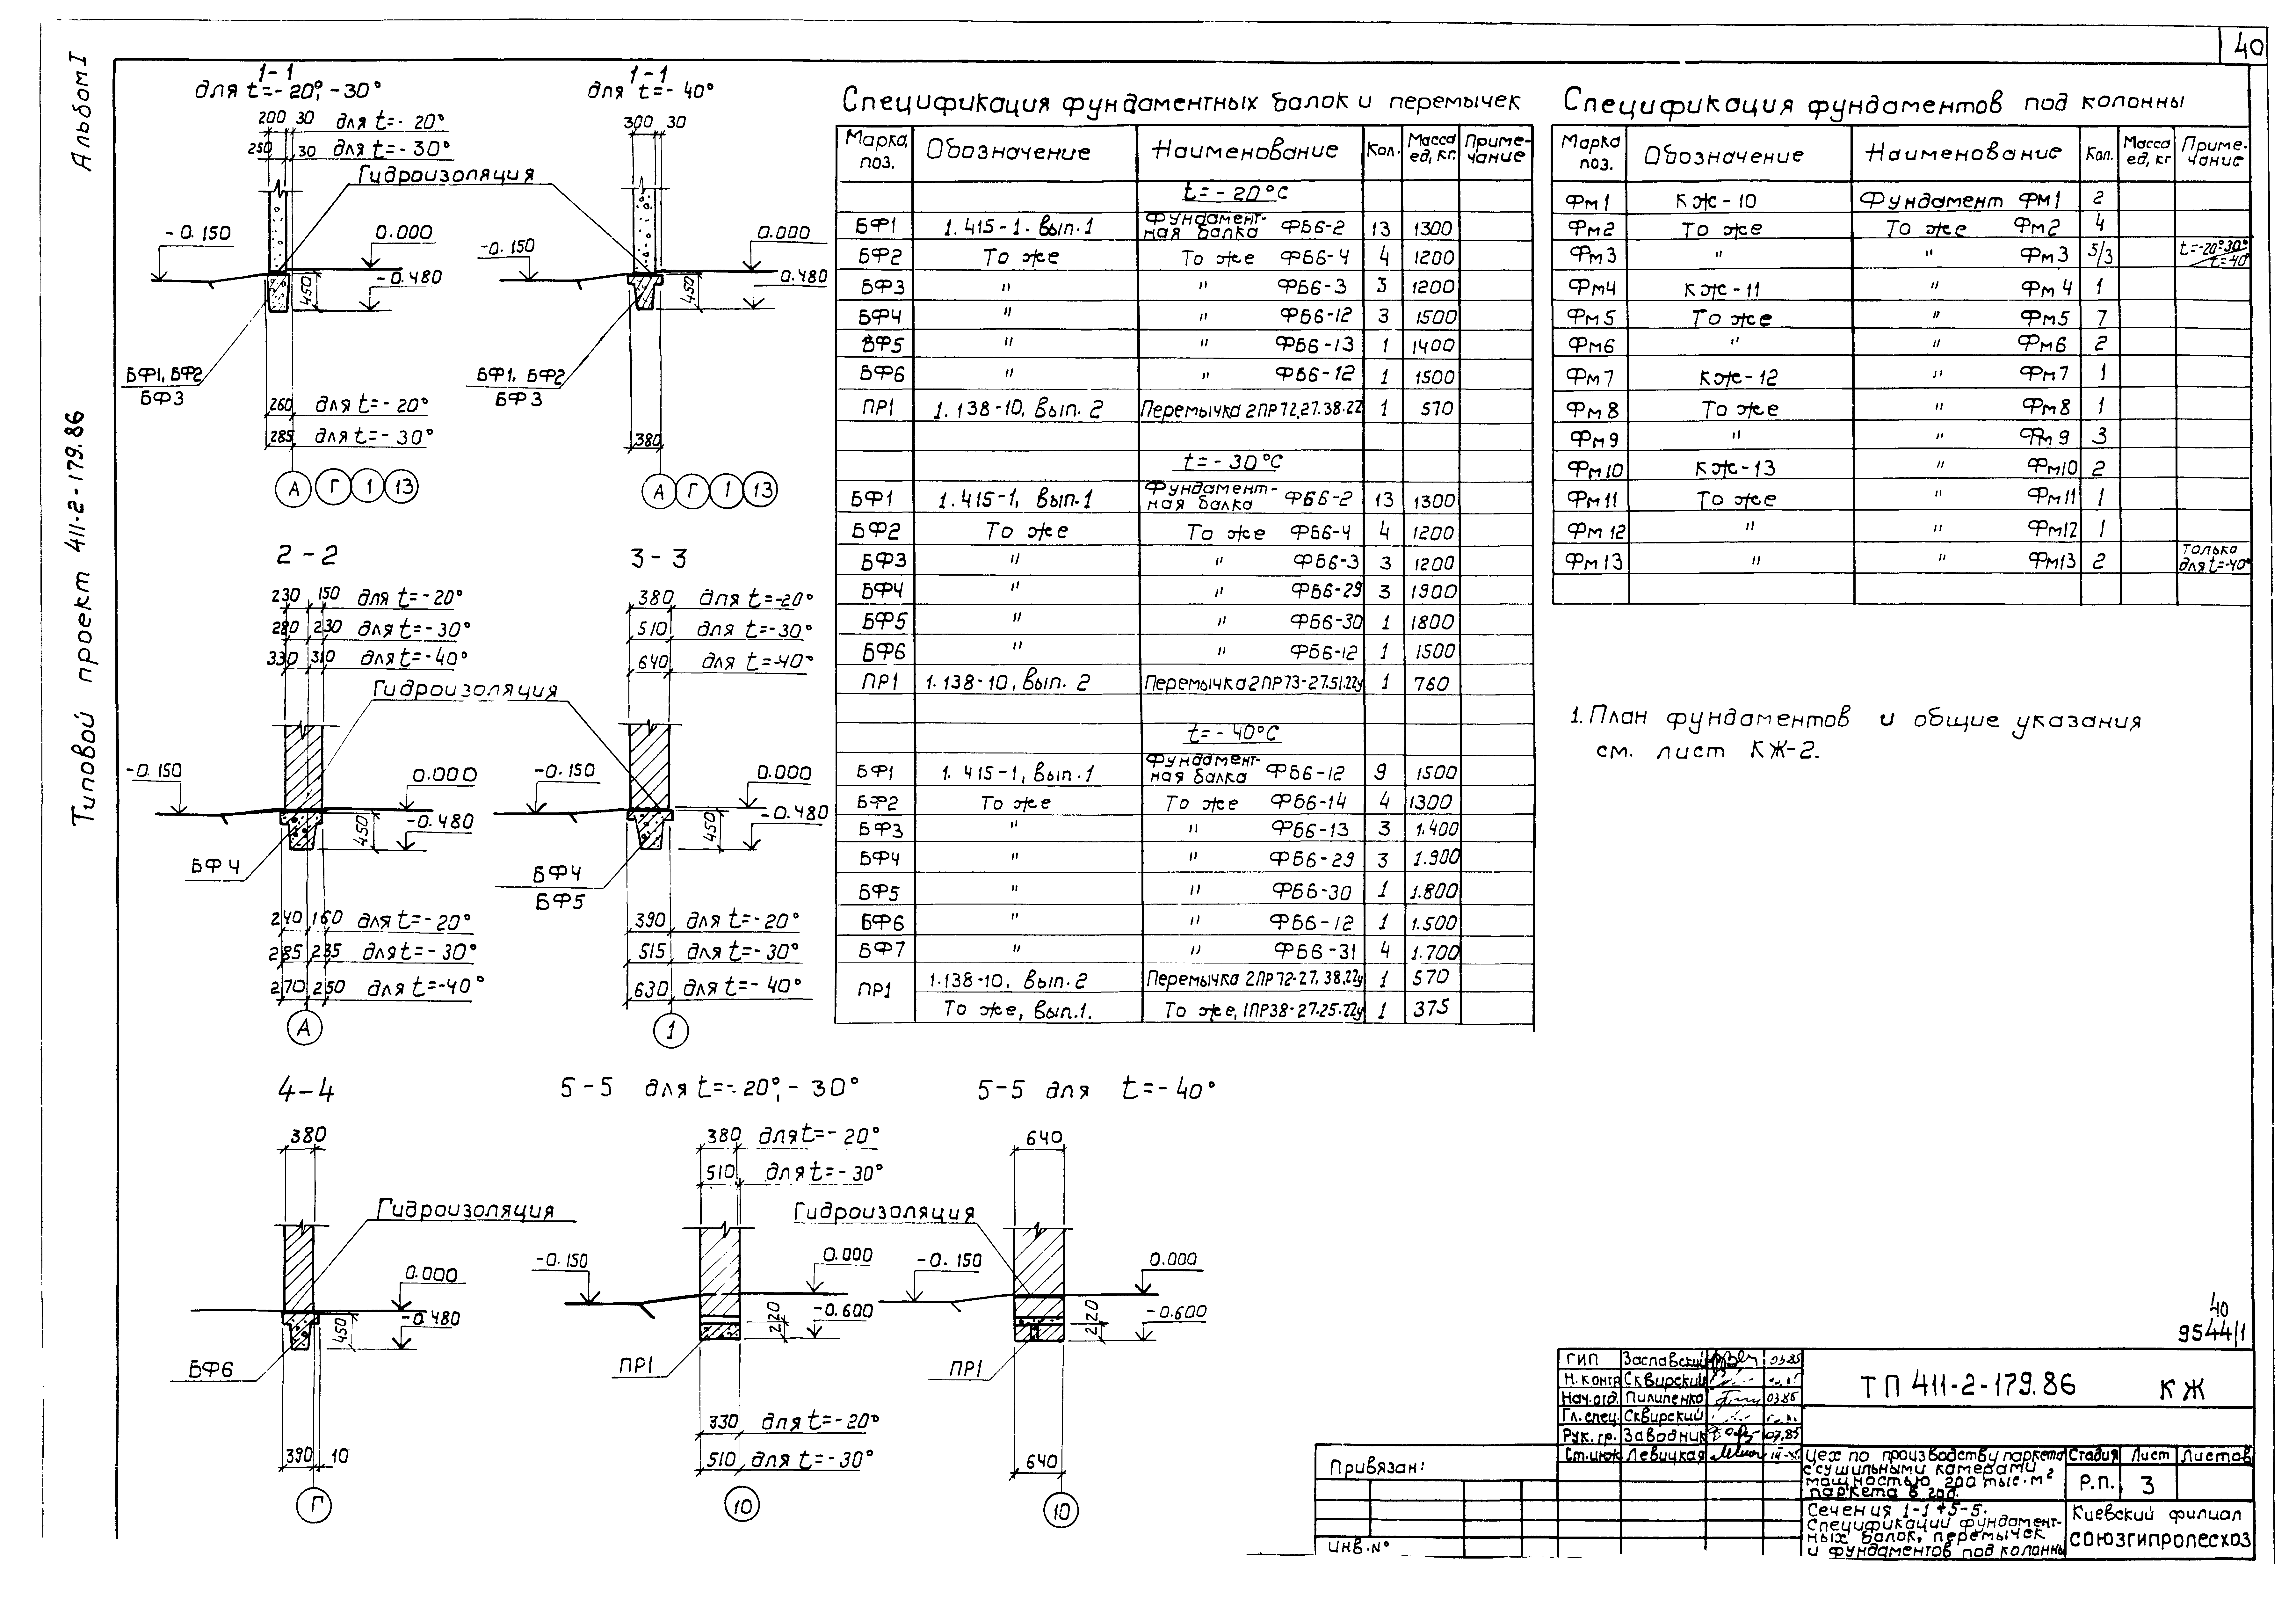 40
Альбом I
Типовой проект 411-2-179.86
1-1
для t=-20°, -30°
200 30 для t=-20°
250 30 для t=-30°
Гидроизоляция
-0.150
0.000
-0.480
450
БФ1, БФ2
БФ3
260 для t=-20°
285 для t=-30°
А Г 1 13
1-1
для t=-40°
300 30
-0.150
0.000
0.480
450
БФ1, БФ2
БФ3
380
А Г 1 13
2-2
230 150 для t=-20°
280 230 для t=-30°
330 310 для t=-40°
Гидроизоляция
-0.150
0.000
-0.480
450
БФ4
240 160 для t=-20°
285 235 для t=-30°
270 250 для t=-40°
А
3-3
380 для t=-20°
510 для t=-30°
640 для t=-40°
-0.150
0.000
-0.480
450
БФ4
БФ5
390 для t=-20°
515 для t=-30°
630 для t=-40°
1
4-4
380
Гидроизоляция
0.000
-0.480
450
БФ6
390 10
Г
5-5 для t=-20°, -30°
380 для t=-20°
510 для t=-30°
-0.150
0.000
220
-0.600
ПР1
330 для t=-20°
510 для t=-30°
10
5-5 для t=-40°
640
Гидроизоляция
-0.150
0.000
220
-0.600
ПР1
640
10
Спецификация фундаментных балок и перемычек
Марка, поз. Обозначение Наименование Кол. Масса ед, кг. Примечание
t=-20°С
БФ1 1.415-1. вып.1 Фундаментная балка ФБ6-2 13 1300
БФ2 То же То же ФБ6-4 4 1200
БФ3 " " ФБ6-3 3 1200
БФ4 " " ФБ6-12 3 1500
БФ5 " " ФБ6-13 1 1400
БФ6 " " ФБ6-12 1 1500
ПР1 1.138-10, вып. 2 Перемычка 2ПР72.27.38.22 1 570
t=-30°С
БФ1 1.415-1, вып.1 Фундаментная балка ФБ6-2 13 1300
БФ2 То же То же ФБ6-4 4 1200
БФ3 " " ФБ6-3 3 1200
БФ4 " " ФБ6-29 3 1900
БФ5 " " ФБ6-30 1 1800
БФ6 " " ФБ6-12 1 1500
ПР1 1.138-10, вып. 2 Перемычка 2ПР73-27.51.22у 1 760
t=-40°С
БФ1 1.415-1, вып.1 Фундаментная балка ФБ6-12 9 1500
БФ2 То же То же ФБ6-14 4 1300
БФ3 " " ФБ6-13 3 1.400
БФ4 " " ФБ6-29 3 1.900
БФ5 " " ФБ6-30 1 1.800
БФ6 " " ФБ6-12 1 1.500
БФ7 " " ФБ6-31 4 1.700
ПР1 1.138-10, вып.2 Перемычка 2ПР72-27.38.22у 1 570
То же, вып.1. То же, 1ПР38-27.25.22у 1 375
Спецификация фундаментов под колонны
Марка поз. Обозначение Наименование Кол. Масса ед, кг Примечание
Фм1 КЖ-10 Фундамент Фм1 2
Фм2 То же То же Фм2 4
Фм3 " " Фм3 5/3 t=-20°-30°/t=-40°
Фм4 КЖ-11 " Фм4 1
Фм5 То же " Фм5 7
Фм6 " " Фм6 2
Фм7 КЖ-12 " Фм7 1
Фм8 То же " Фм8 1
Фм9 " " Фм9 3
Фм10 КЖ-13 " Фм10 2
Фм11 То же " Фм11 1
Фм12 " " Фм12 1
Фм13 " " Фм13 2 только для t=-40°
1. План фундаментов и общие указания
см. лист КЖ-2.
40
9544/1
ГИП Заславский 03.85
Н.контр Сквирский
Нач.отд. Пилипенко 03.86
Гл.спец. Сквирский
Рук.гр. Заводник 03.85
Ст.инж. Левицкая
ТП 411-2-179.86 КЖ
Цех по производству паркета
с сушильными камерами
мощностью 200 тыс.м²
паркета в год.
Стадия Лист Листов
Р.П. 3
Сечения 1-1÷5-5.
Спецификации фундамент-
ных балок, перемычек
и фундаментов под колонны
Киевский филиал
СОЮЗГИПРОЛЕСХОЗ
Привязан:
инв.№